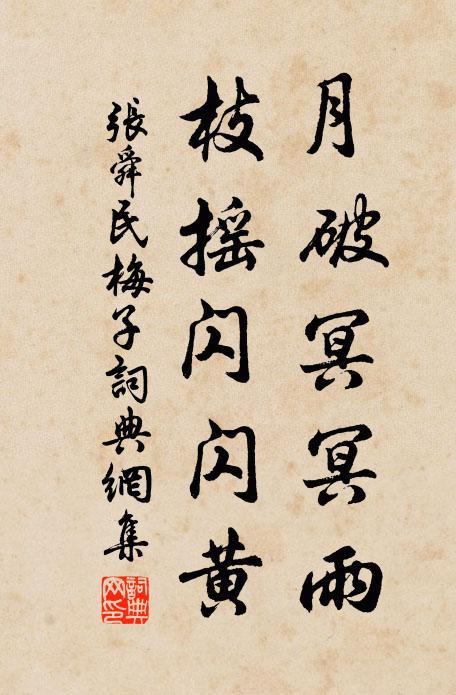 月破冥冥雨
枝摇闪闪黄
張舜民梅子詞典網集
詞典网印